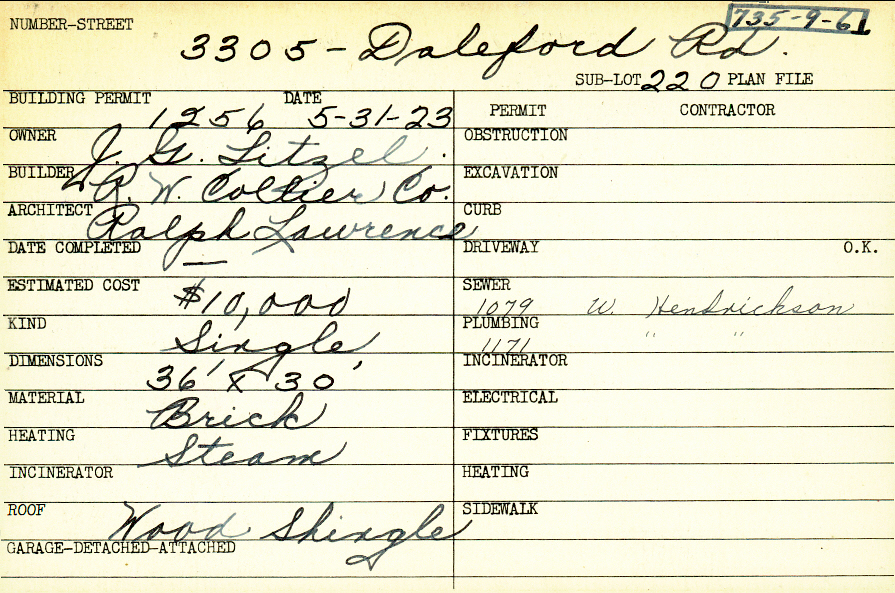 735-9-61
NUMBER-STREET
3305 - Daleford Rd.
SUB-LOT 220 PLAN FILE
BUILDING PERMIT 1256 DATE 5-31-23
PERMIT CONTRACTOR
OWNER J. G. Litzel.
OBSTRUCTION
BUILDER R. W. Collier Co.
EXCAVATION
ARCHITECT Ralph Lawrence
CURB
DATE COMPLETED —
DRIVEWAY O.K.
ESTIMATED COST $10,000
SEWER 1079 W. Hendrickson
KIND Single
PLUMBING 1171 " "
DIMENSIONS 36' x 30'
INCINERATOR
MATERIAL Brick
ELECTRICAL
HEATING Steam
FIXTURES
INCINERATOR
HEATING
ROOF Wood Shingle
SIDEWALK
GARAGE-DETACHED-ATTACHED